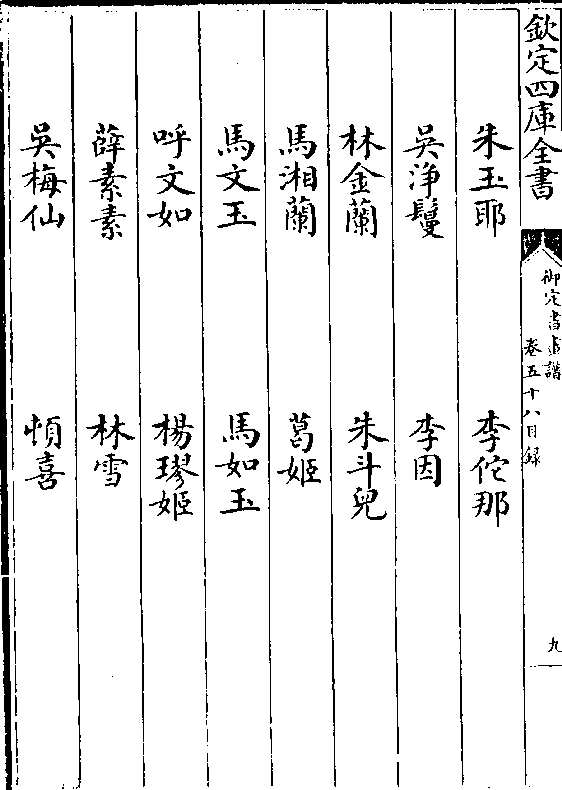 欽定四庫全書
御定書畫譜
卷五十八目録
九
朱玉耶　李佗那
吳淨鬘　李因
林金蘭　朱斗兒
馬湘蘭　葛姬
馬文玉　馬如玉
呼文如　楊璆姬
薛素素　林雪
吳梅仙　頃喜